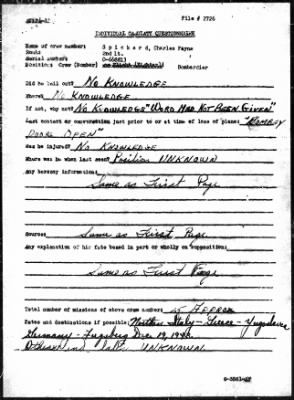 File # 2726
INDIVIDUAL CASUALTY QUESTIONNAIRE
Name of crew member: Spickard, Charles Payne
Rank: 2nd Lt.
Serial number:
Position: Crew (Bomber) Bombardier
Did he bail out? No KNOWLEDGE
Where? No KNOWLEDGE
If not, why not? No KNOWLEDGE "WORD HAD NOT BEEN GIVEN"
Last contact or conversation just prior to or at time of loss of plane: "BOMBAY
DOORS OPEN"
Was he injured? No KNOWLEDGE
Where was he when last seen? Position UNKNOWN
Any hearsay information:
Same as First Page
Source: Same as First Page
Any explanation of his fate based in part or wholly on supposition:
Same as First Page
Total number of missions of above crew member:
Dates and destinations if possible: Northern Italy - Greece - Yugoslavia
Germany - Dec 19, 1943
UNKNOWN